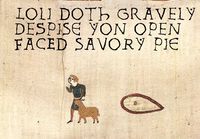 LOLI DOTH GRAVELY
DESPISE YON OPEN
FACED SAVORY PIE